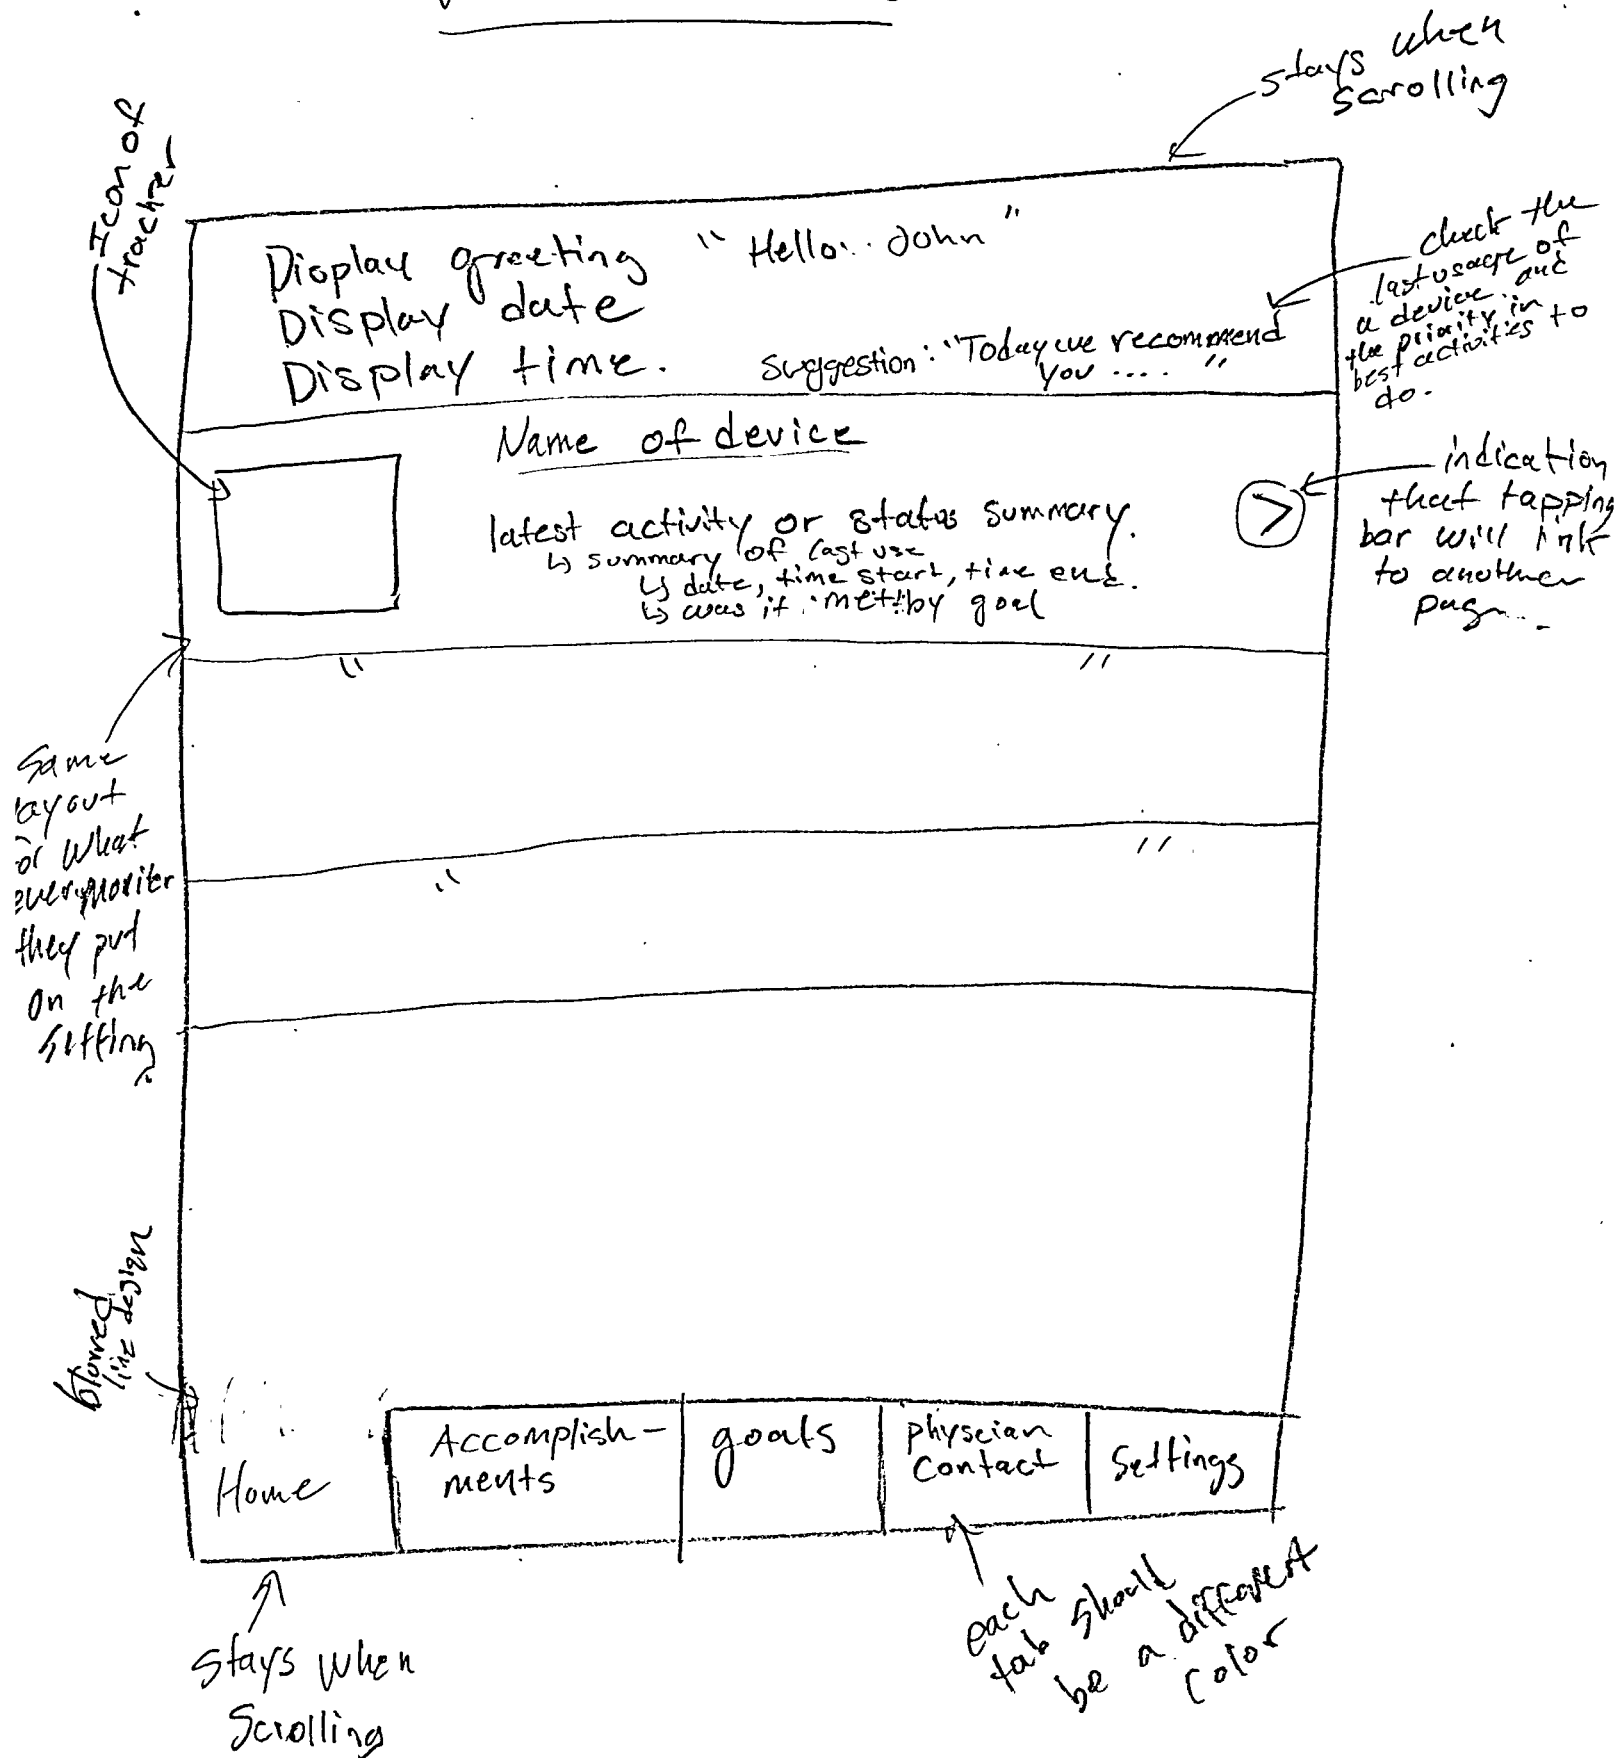 stays when
scrolling
Icon of
tracker
Display greeting " Hello... John "
Display date
Display time.
Suggestion: "Today we recommend
you .... "
check the
last usage of
a device and
the priority in
best activities to
do.
Name of device
latest activity or status summary.
↳ summary of last use
↳ date, time start, time end.
↳ was it met by goal
>
indication
that tapping
bar will link
to another
page...
" "
Same
layout
or what
ever moniter
they put
on the
setting
" "
blurred
line design
Home
Accomplish-
ments
goals
physcian
Contact
Settings
stays when
Scrolling
each
tab should
be a different
color